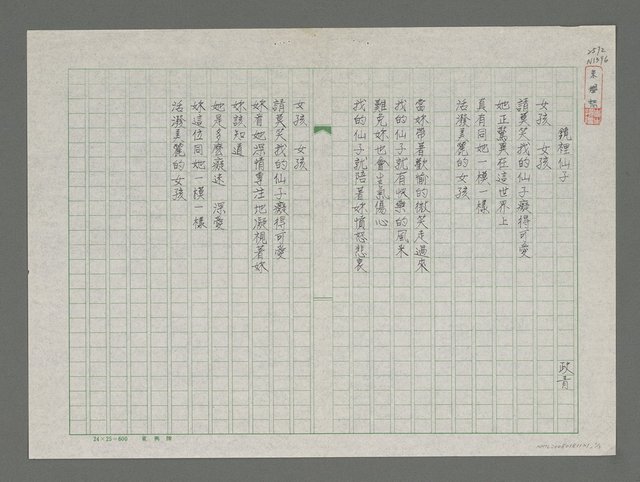 2592
N1396
鏡裡仙子
政青
女孩 女孩
請莫笑我的仙子癡得可愛
她正驚異在這世界上
真有同她一模一樣
活潑美麗的女孩
當妳帶著歡愉的微笑走過來
我的仙子就有快樂的風采
難免妳也會生氣傷心
我的仙子就陪著妳憤怒悲哀
女孩 女孩
請莫笑我的仙子癡得可愛
妳看她深情專注地凝視著妳
妳該知道
她是多麼癡迷 深愛
妳這位同她一模一樣
活潑美麗的女孩
24×25=600